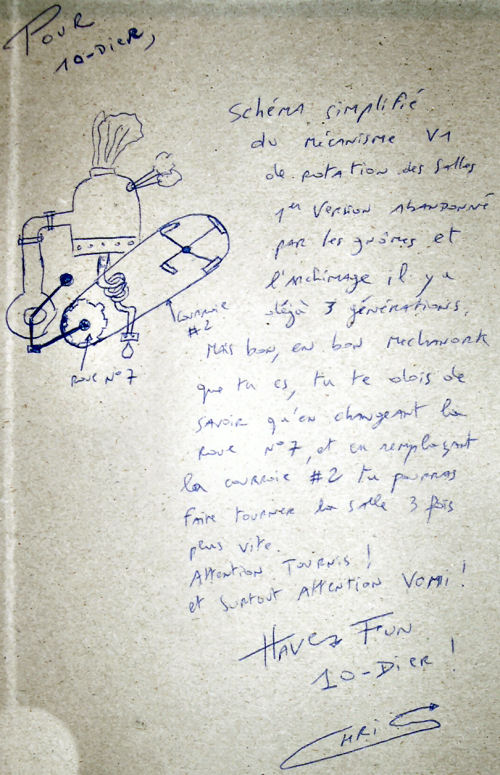 Pour
10-Dier,
Schéma simplifié
du mécanisme V1
de rotation des salles
1er version abandonné
par les gnômes et
l'archimage il y a
déjà 3 générations.
Mais bon, en bon Mechanork
que tu es, tu te dois de
savoir qu'en changeant la
roue n°7, et en remplaçant
la courroie #2 tu pourras
faire tourner la salle 3 fois
plus vite.
Attention Tournis !
et surtout Attention Vomi !
Havez Fun
10-Dier !
Chris
courroie
#2
roue n°7